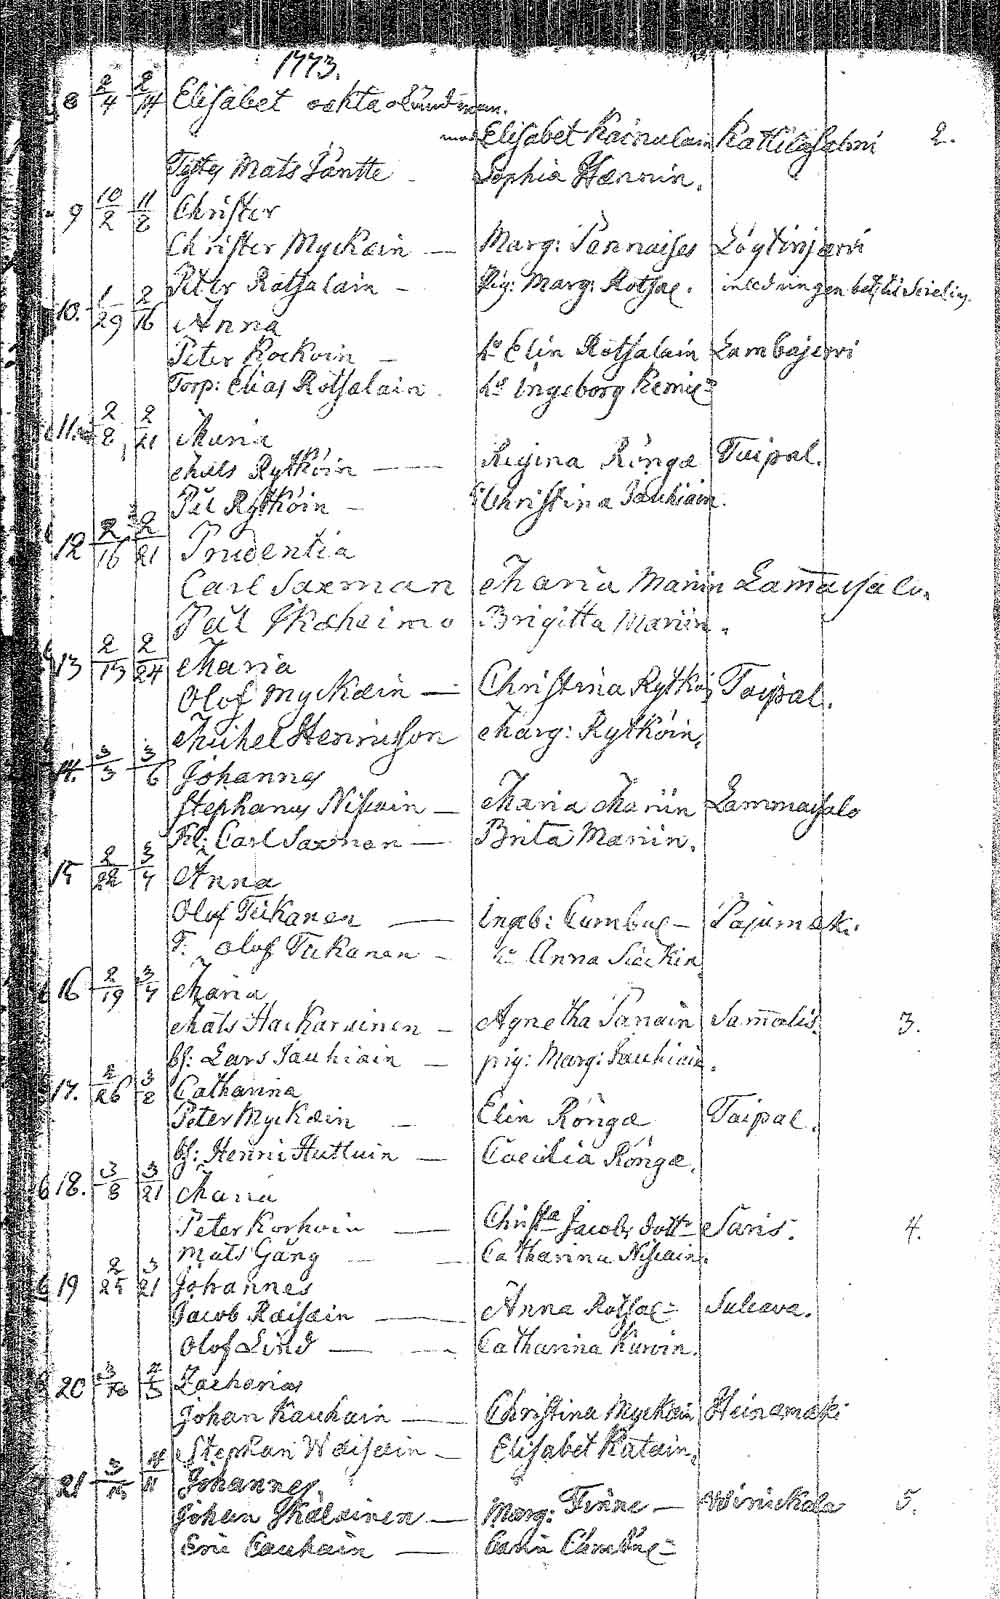 1773.
8 2/4 2/14 Elisabet oäkta
Elisabet Kainulain Kattilasalmi 2.
Mats Jäntte - Sophia Hännin.
9 10/2 11/2 Christer
Christer Myckäin - Marg: Pannaises Löytinjärvi
Peter Rotsalain - pig: Marg: Rotsae. inledningen
10. 1/29 2/16 Anna
Peter Kockoin - hu Elin Rotsalain Lambajervi
Torp: Elias Rotsalain. hu Ingeborg
11. 2/8 2/21 Maria
Mats Rytköin - Regina Röngæ Taipal.
Pål Rytköin - Christina Jauhiain.
12 2/16 2/21 Prudentia
Carl Saxman Maria Mariin Lam̄asalo.
Pål Brigitta Mariin.
13 2/13 2/24 Maria
Olof Myckäin - Christina Rytkö Taipal.
Michel Henrisson Marg: Rytköin.
14. 3/3 3/6 Johannes
Stephanus Nissain - Maria Mariin Lammasalo
Carl Saxman - Brita Mariin.
15 2/22 3/7 Anna
Olof Tikanen - Ingeb: Pajumäki
T. Olof Tikanen - hu Anna
16 2/19 3/7 Maria
Mats Hackarainen - Agnetha Panain Sam̄alis. 3.
bf: Lars Jauhiain - pig: Marg: Jauhiain.
17. 2/26 3/8 Catharina
Peter Myckäin - Elin Röngæ Taipal.
bf: Henric Huttuin - Caecilia Röngæ.
18. 3/8 3/21 Maria
Peter Korhoin - Christa Jacobs dottr Saris. 4.
Mats Gång - Catharina Nissain.
19 2/25 3/21 Johannes
Jacob Räisäin - Anna Rotsae Sulcava.
Olof Lind - Catharina
20 3/ 4/5 Zacharias
Johan Kauhain - Christina Myckäin Heinämäki
Stephan Wäisäin - Elisabet Katain.
21 3/ 4/11 Johannes
Johan - Marg: Tinne - Winickala 5.
Eric Cauhain - Carin